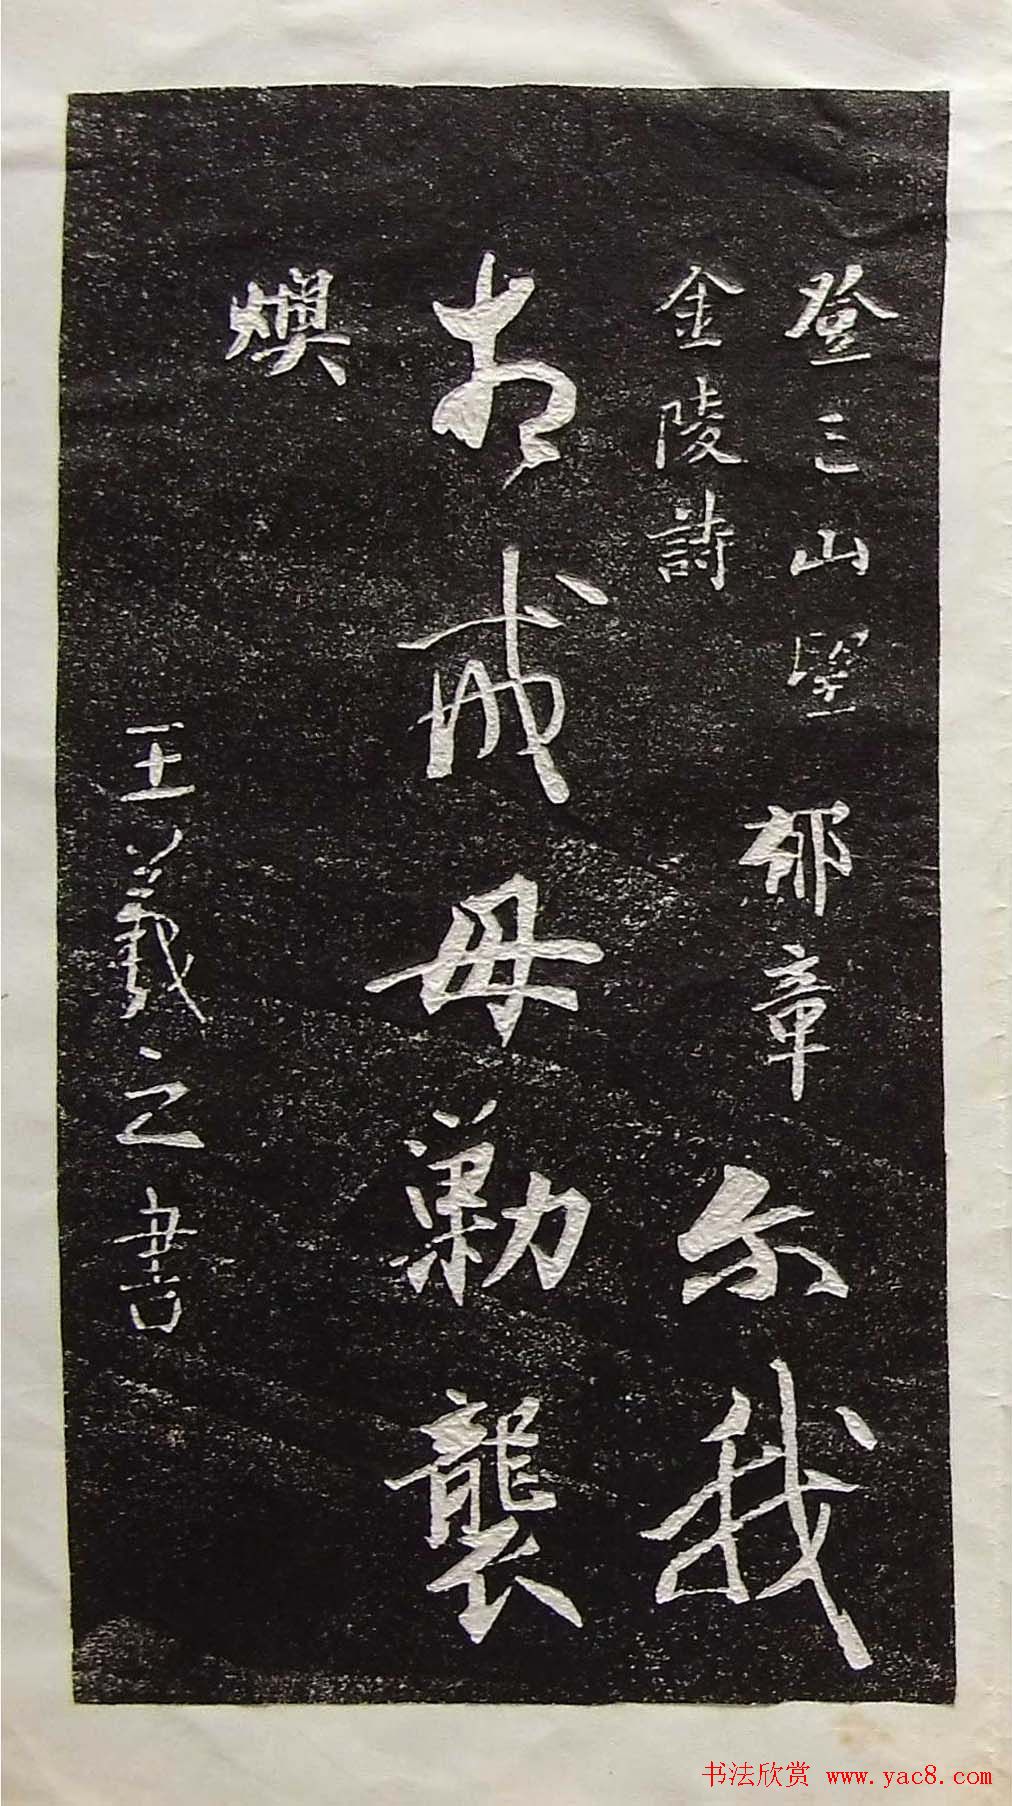 登三山望
金陵詩
章
尔我
相戒毋勦襲
燠
王羲之書
书法欣赏 www.yac8.com